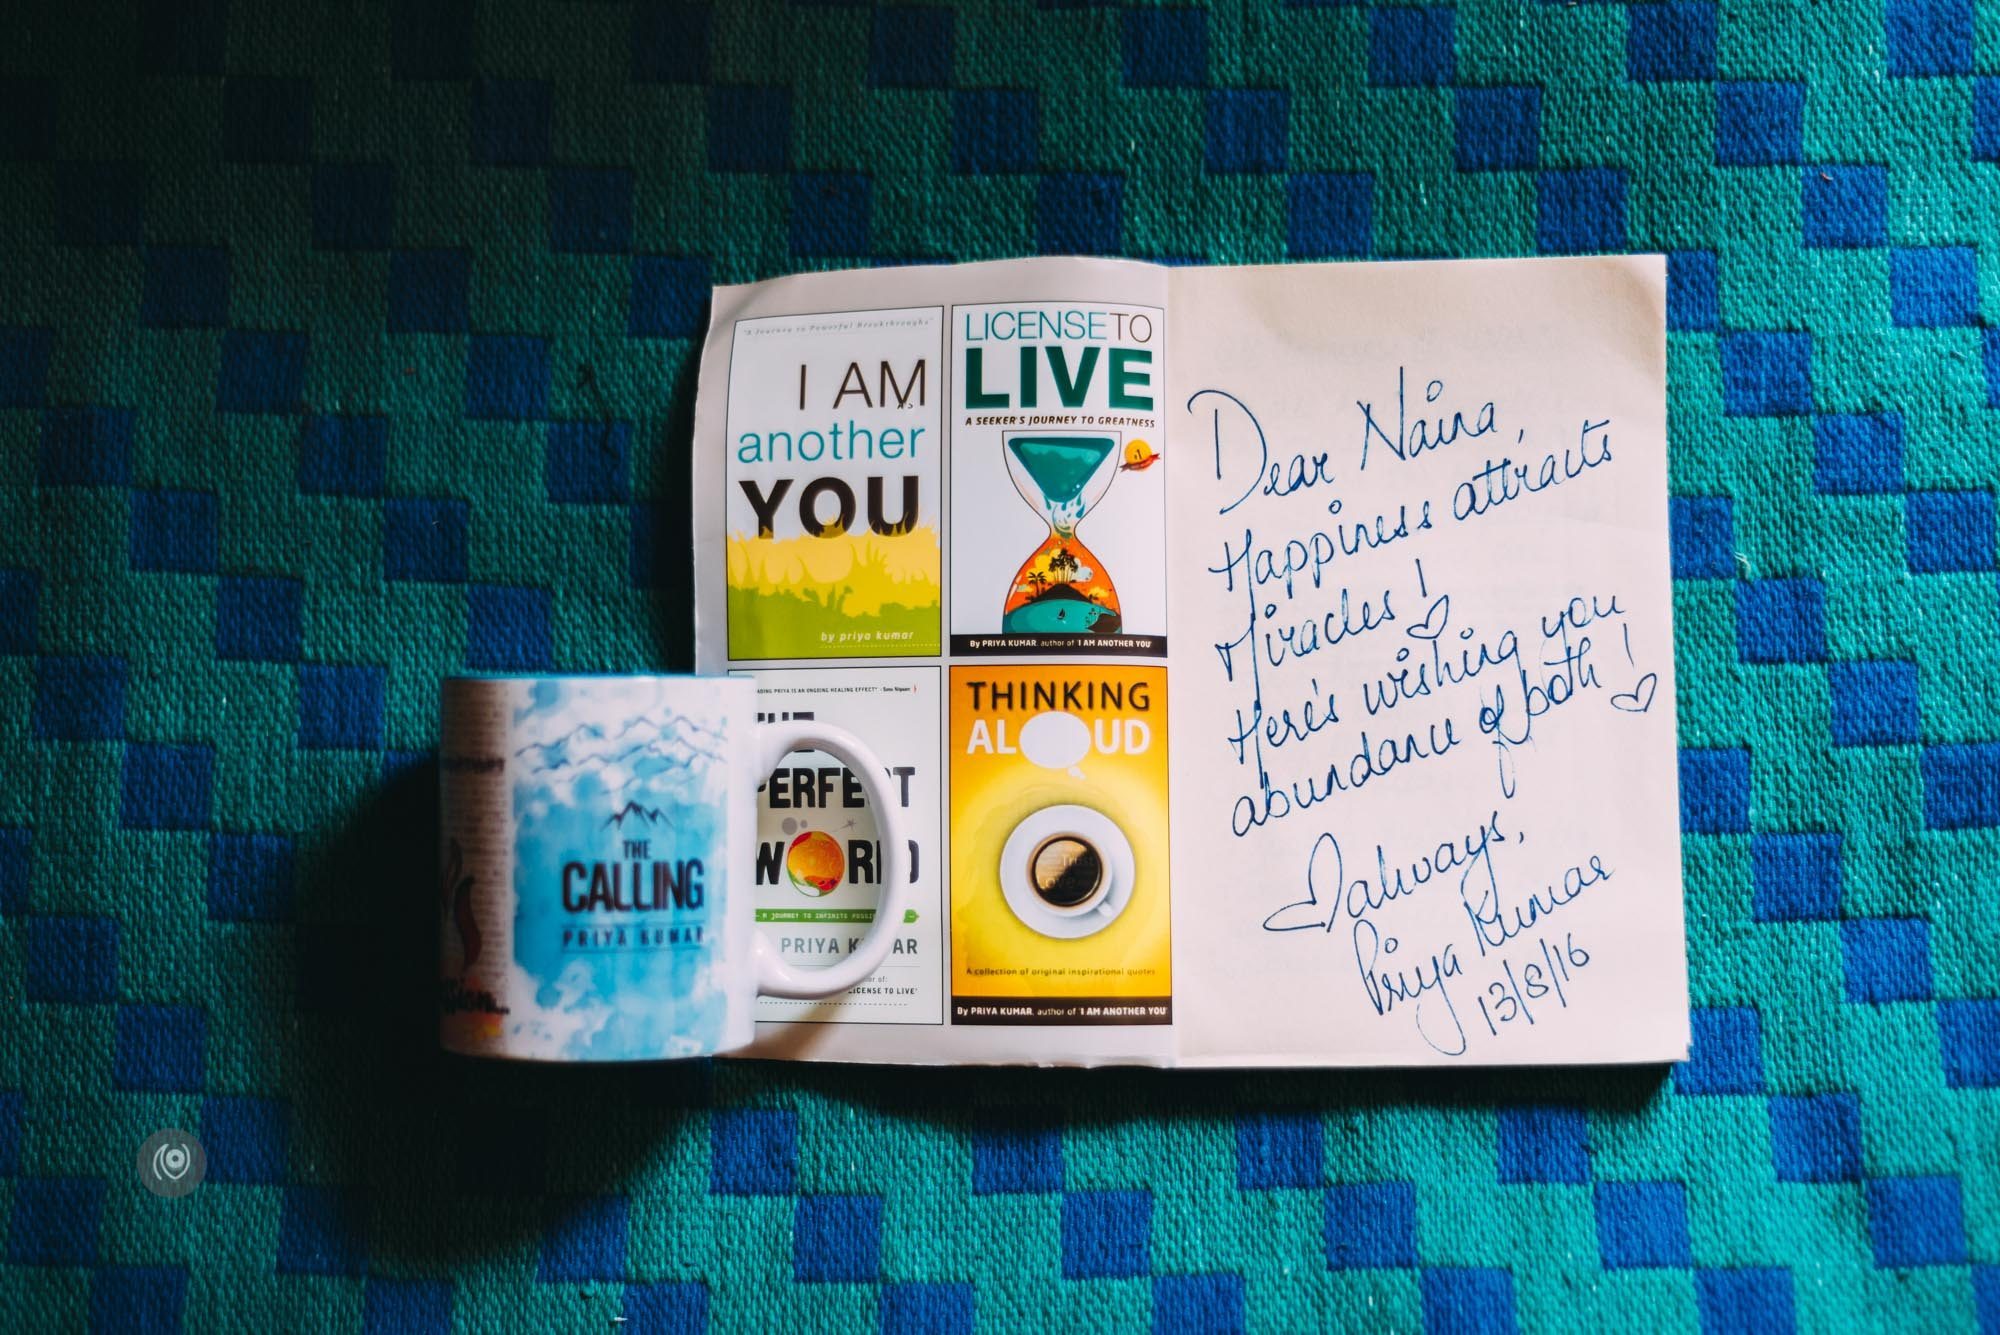 "A Journey to Powerful Breakthroughs"
I AM
another
YOU
by priya kumar
LICENSE TO
LIVE
A SEEKER'S JOURNEY TO GREATNESS
#1
By PRIYA KUMAR, author of 'I AM ANOTHER YOU'
ADING PRIYA IS AN ONGOING HEALING EFFECT" - Sonu Nigaam
THE
PERFECT
WORLD
A JOURNEY TO INFINITE POSSI
PRIYA KUMAR
or of:
LICENSE TO LIVE'
THINKING
ALOUD
A collection of original inspirational quotes
By PRIYA KUMAR, author of 'I AM ANOTHER YOU'
THE
CALLING
PRIYA KUMAR
Dear Naina,
Happiness attracts
Miracles!
Here's wishing you
abundance of both!
always,
Priya Kumar
13/8/16